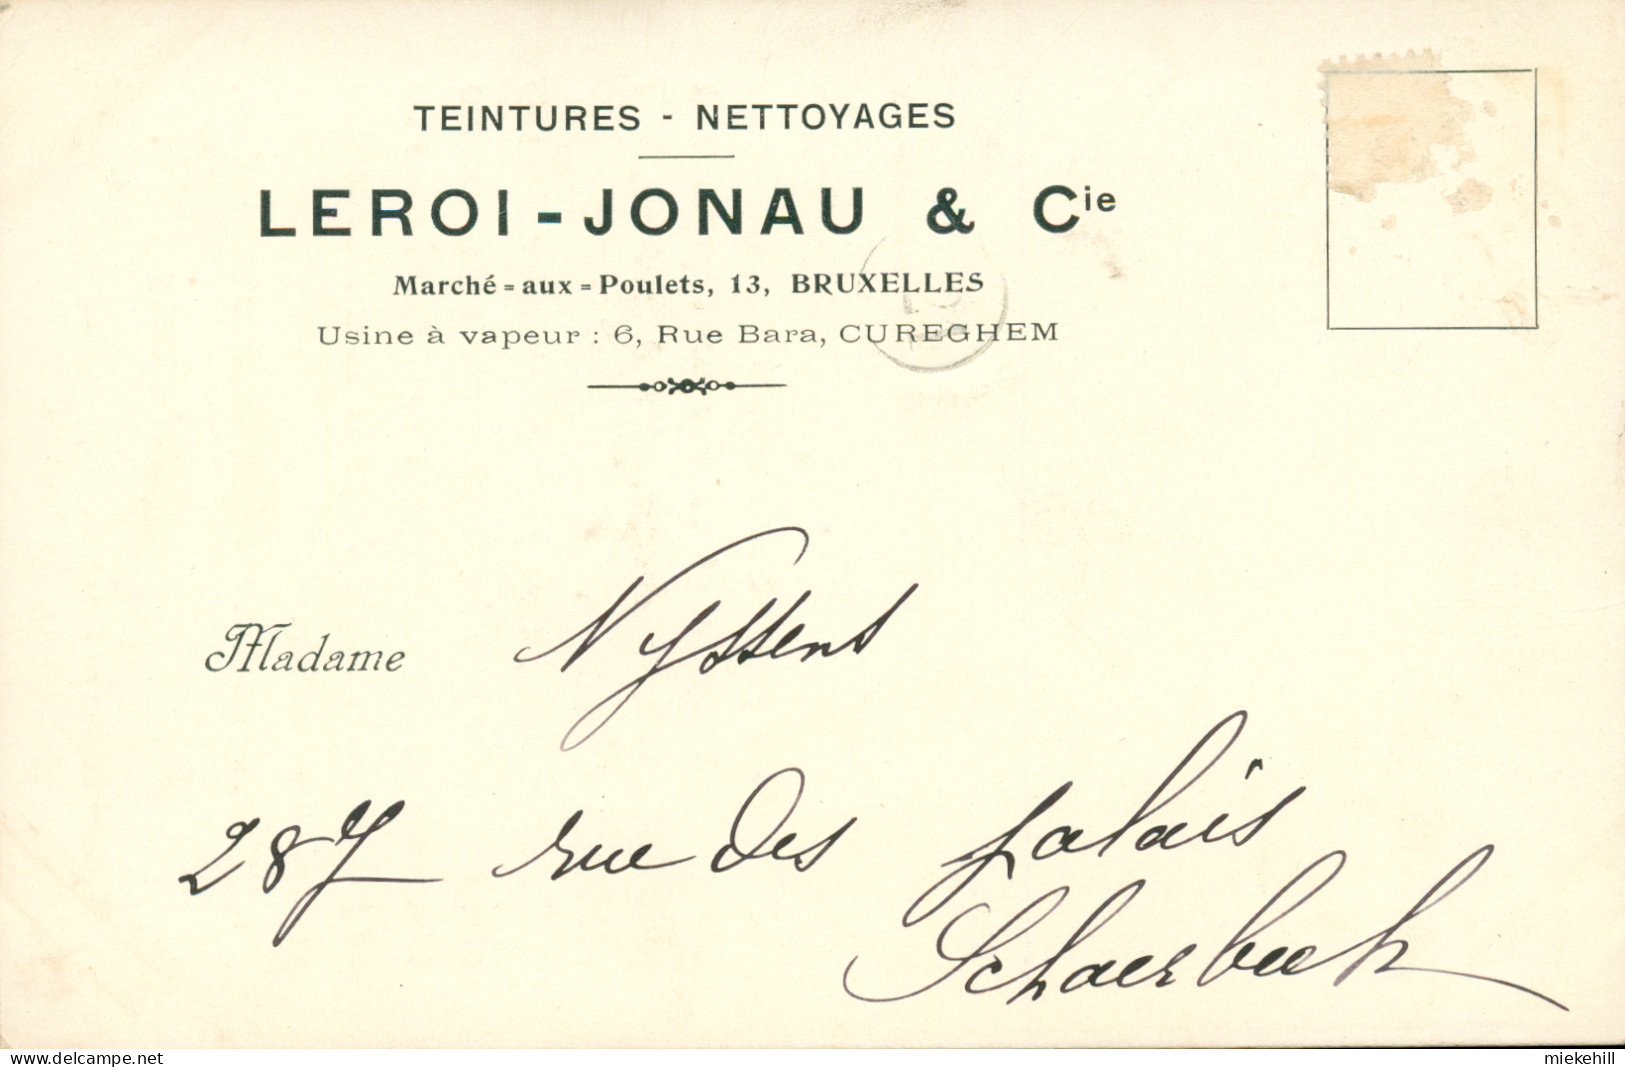 TEINTURES - NETTOYAGES
LEROI-JONAU & Cie
Marché-aux-Poulets, 13, BRUXELLES
Usine à vapeur : 6, Rue Bara, CUREGHEM
Madame Nyssens
287 rue des palais
Schaerbeek
www.delcampe.net
miekehill